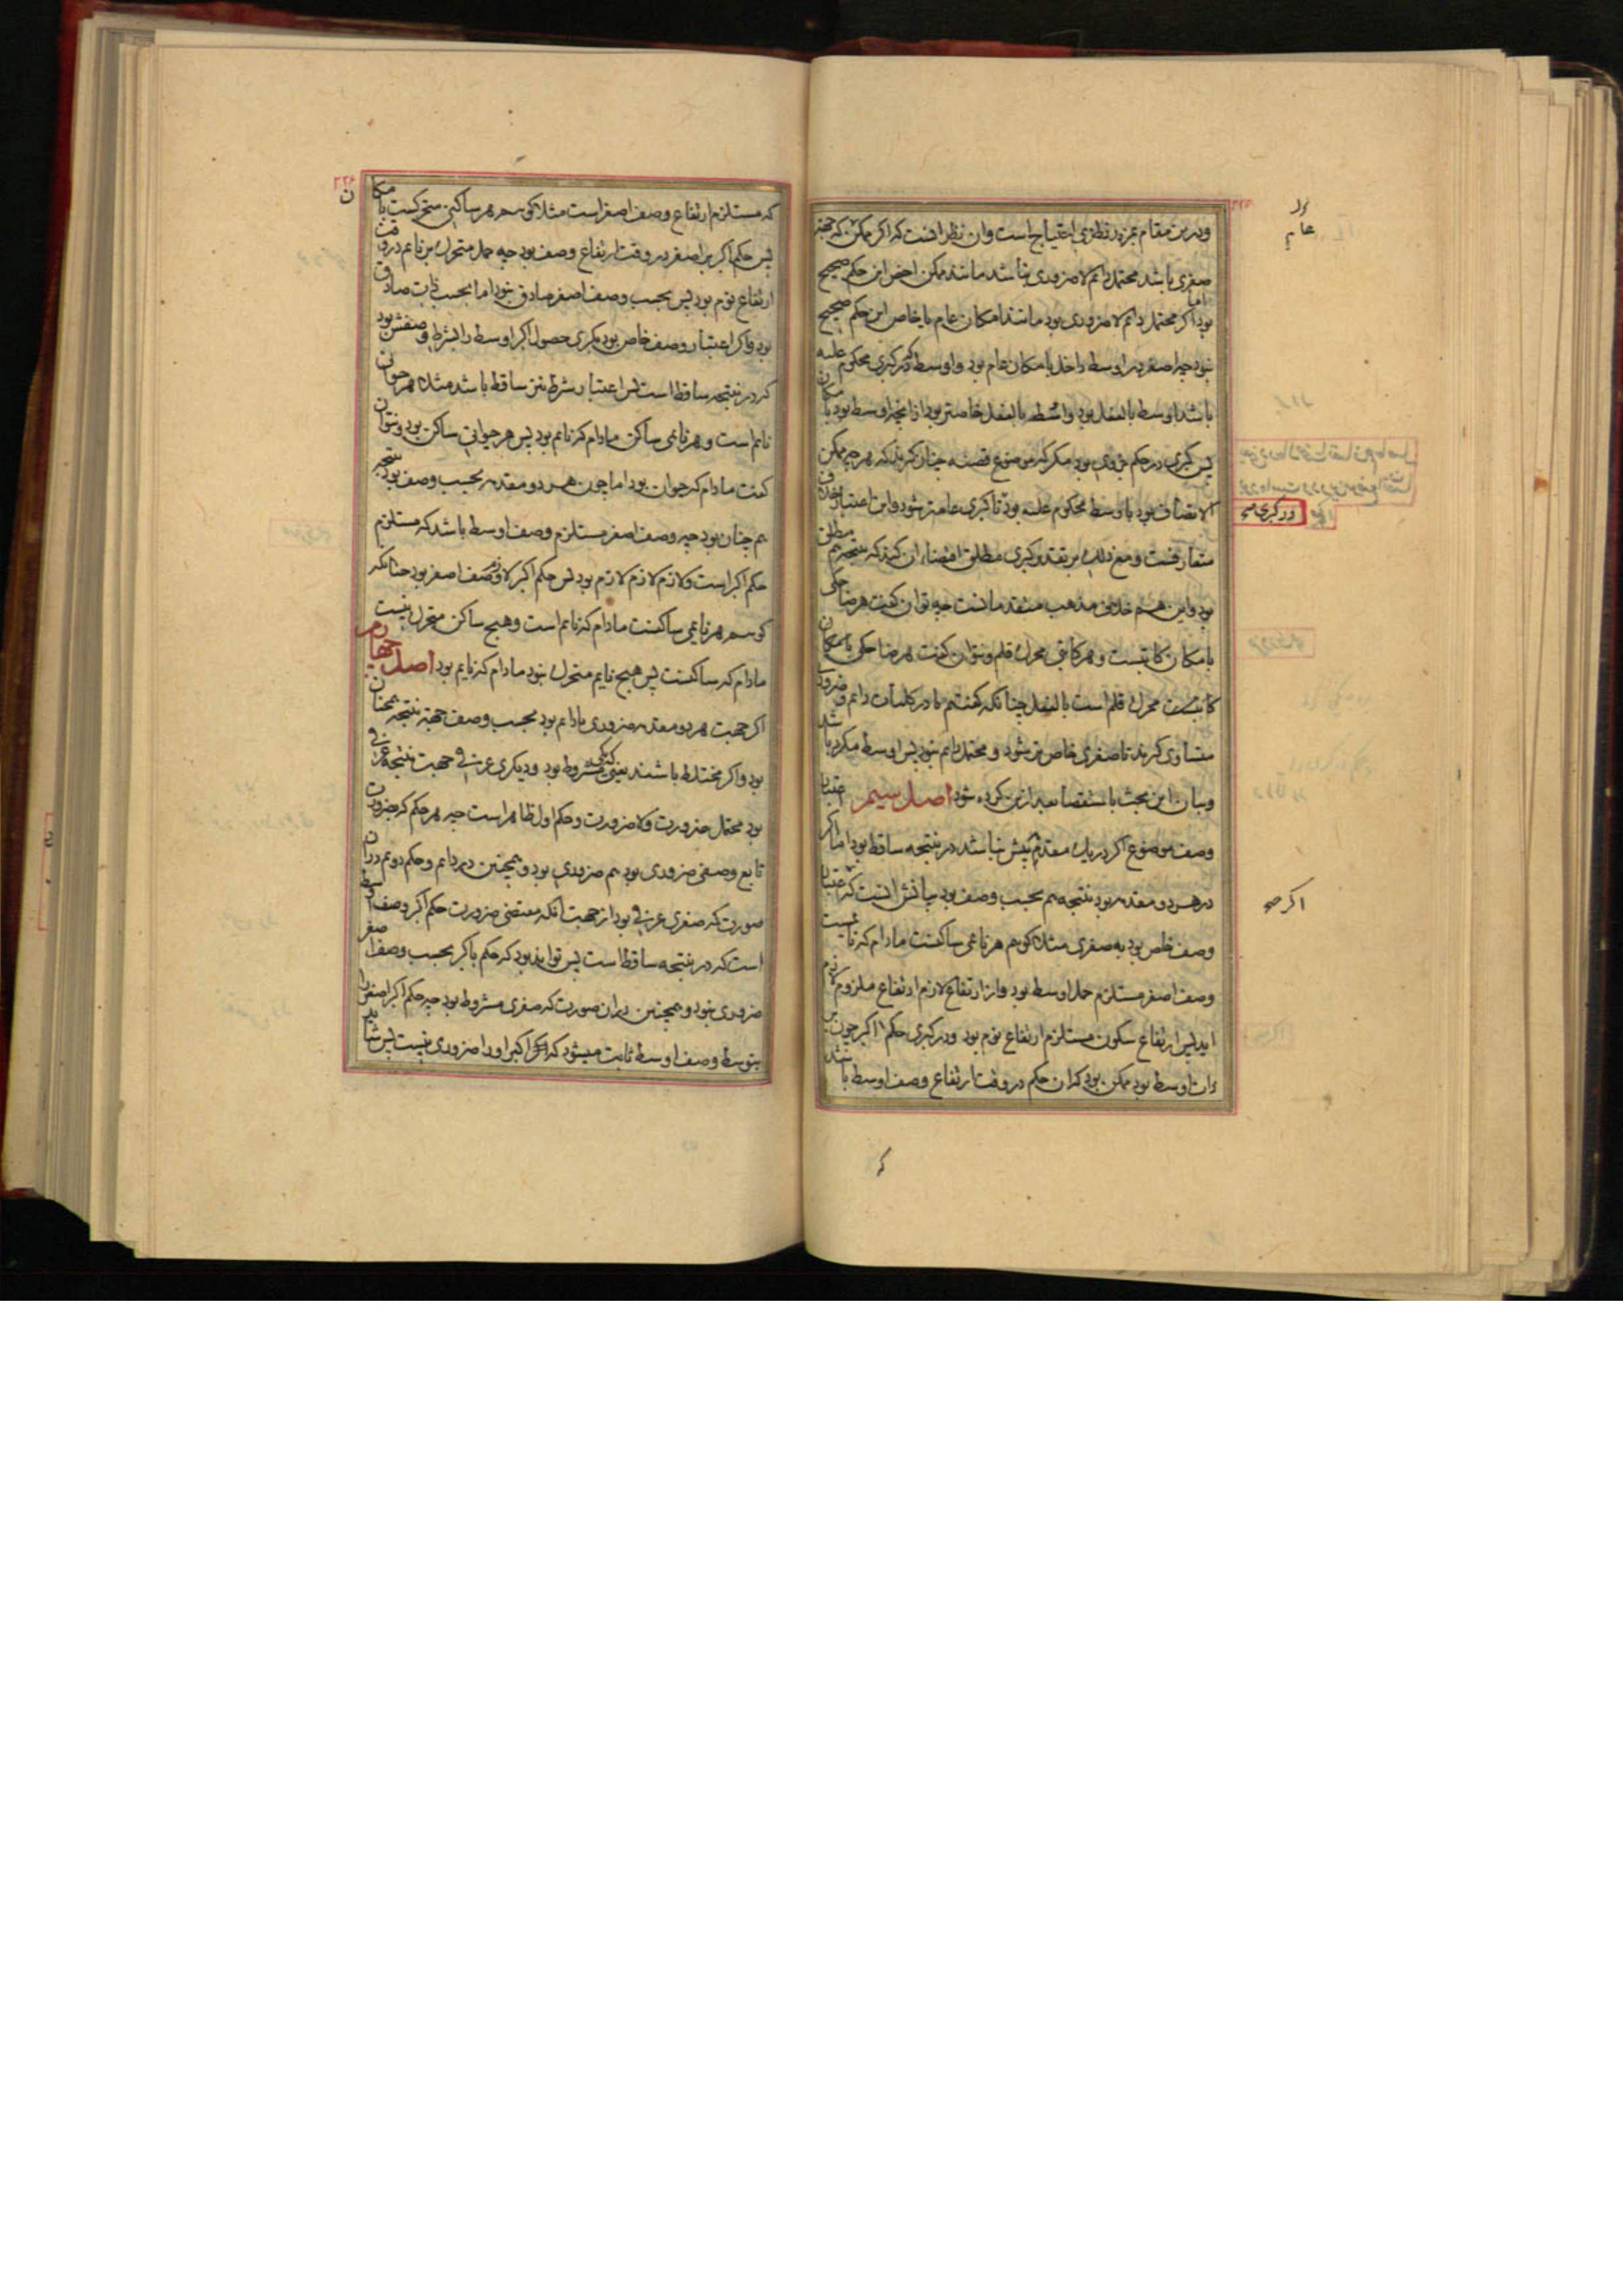 ودرین مقام بمزید نظری احتیاج است وآن نظر آنست که اگر ممکن که جهة
صغری باشد محتمل دائم لاضروری نباشد مانند ممکن اخص این حکم صحیح
بود اما اگر محتمل دائم لاضروری بود مانند امکان عام یا خاص این حکم صحیح
نبود چه اصغر در اوسط داخل بامکان عام بود واوسط که در کبری محکوم علیه
باشد اوسط بالفعل بود واوسط بالفعل خاصتر بود از آنچه اوسط بود بامکان
پس کبری در حکم جزوی بود مگر که موضوع قضیه چنان گیرند که هرچه ممکن
الاتصاف بود باوسط محکوم علیه بود تا کبری عامتر شود واین اعتبار خلاف
متعارفست ومع ذلک بر تقدیر کبری مطلق اقتضاء آن کند که نتیجه هم مطلق
بود واین هم خلاف مذهب متقدمانست چه توان گفت هر ضاحکی
بامکان کاتبست وهر کاتبی محرک قلم ونتوان گفت هر ضاحکی بامکان
کاتبست محرک قلم است بالفعل چنانکه گفتیم یا در کلیات دائم وضروری
متساوی گیرند تا صغری خاص تر شود ومحتمل دائم نبود پس اوسط مکرر باشد
وبیان این بحث باستقصا بعد ازین کرده شود اصل سیم اعتبار
وصف موضوع اگر در یک مقدمه بیش نباشد در نتیجه ساقط بود اما اگر
در هر دو مقدمه بود نتیجه هم بحسب وصف بود بیانش آنست که اعتبار
وصف خاص بود به صغری مثلا گوییم هر نایمی ساکنست مادام که نایمست
وصف اصغر مستلزم حمل اوسط بود واز ارتفاع لازم ارتفاع ملزوم لازم
آید پس ارتفاع سکون مستلزم ارتفاع نوم بود ودر کبری حکم اکبر چون بر
ذات اوسط بود ممکن بود که آن حکم در وقت ارتفاع وصف اوسط باشد
که مستلزم ارتفاع وصف اصغر است مثلا گوییم هر ساکنی متحرکست بامکان
پس حکم اکبر بر اصغر در وقت ارتفاع وصف بود چه حمل متحرک بر نایم در وقت
ارتفاع نوم بود پس بحسب وصف اصغر صادق نبود اما بحسب ذات صادق
بود واگر اعتبار وصف خاص بود بکبری حصول اکبر اوسط را بشرط وصفش بود
که در نتیجه ساقط است پس اعتبار شرط نیز ساقط باشد مثلا هر حیوان
نایم است وهر نایمی ساکن مادام که نایم بود پس هر حیوانی ساکن بود ونتوان
گفت مادام که حیوان بود اما چون هر دو مقدمه بحسب وصف بود نتیجه
هم چنان بود چه وصف اصغر مستلزم وصف اوسط باشد که مستلزم
حکم اکبر است ولازم لازم لازم بود پس حکم اکبر لازم وصف اصغر بود چنانکه
گوییم هر نایمی ساکنست مادام که نایم است وهیچ ساکن متحرک نیست
مادام که ساکنست پس هیچ نایم متحرک نبود مادام که نایم بود اصل چهارم
اگر جهت هر دو مقدمه ضروری یا دائم بود بحسب وصف جهة نتیجه همچنان
بود واگر مختلط باشند یعنی یکی مشروط بود ودیگری عرفی جهت نتیجه عرفی
بود محتمل ضرورت ولاضرورت وحکم اول ظاهر است چه هر حکم که ضرورت
تابع وصفی ضروری بود هم ضروری بود وهمچنین در دائم وحکم دوم در آن
صورت که صغری عرفی بود از جهت آنکه مقتضی ضرورت حکم اکبر وصف اوسط
است که در نتیجه ساقط است پس تواند بود که حکم باکبر بحسب وصف اصغر
ضروری نبود وهمچنین در آن صورت که صغری مشروط بود چه حکم اکبر اصغر را
بتوسط وصف اوسط ثابت میشود که اکبر او را ضروری نیست پس شاید
عام
ودر کبری
اگر چه